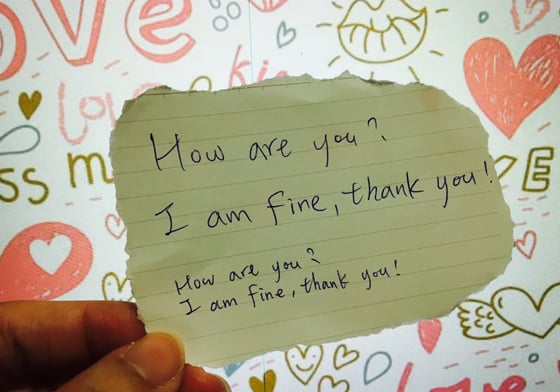 OVE
love
kis
ss m
VE
How are you?
I am fine, thank you!
How are you?
I am fine, thank you!
love